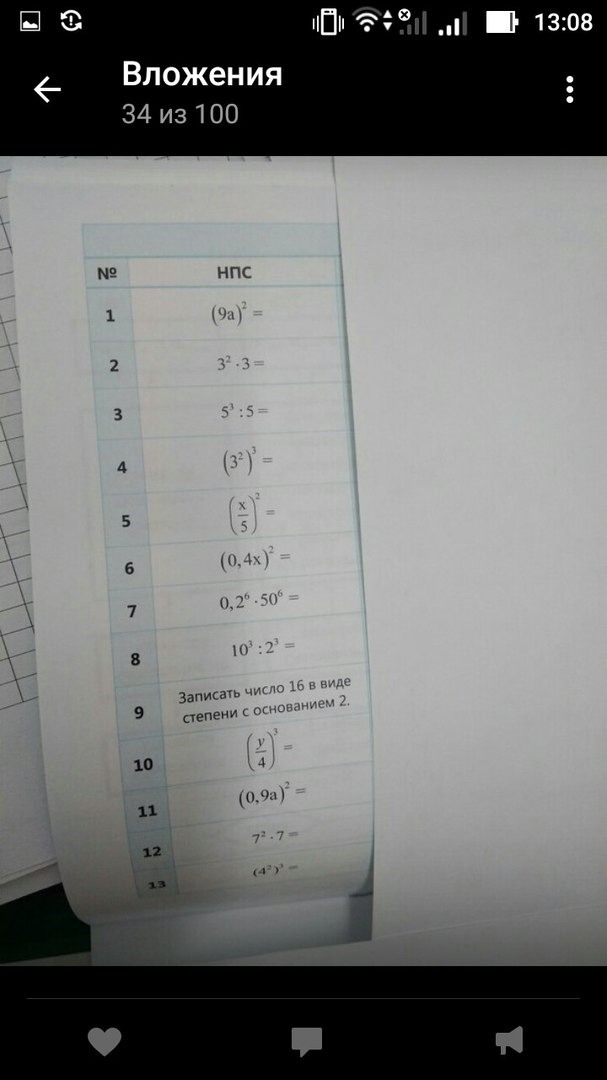 13:08
Вложения
34 из 100
№ НПС
1 (9a)² =
2 3² · 3 =
3 5³ : 5 =
4 (3²)³ =
5 (x/5)² =
6 (0,4x)² =
7 0,2⁶ · 50⁶ =
8 10³ : 2³ =
9 Записать число 16 в виде
степени с основанием 2.
10 (y/4)³ =
11 (0,9a)² =
12 7² · 7 =
13 (4²)³ =